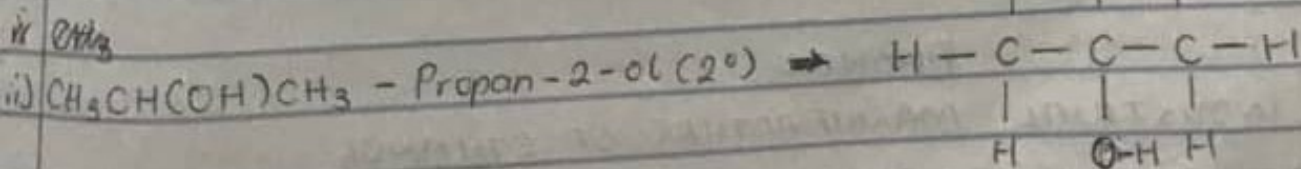 ii) CH₃CH(OH)CH₃ - Propan-2-ol (2°) → H — C — C — C — H
H O-H H